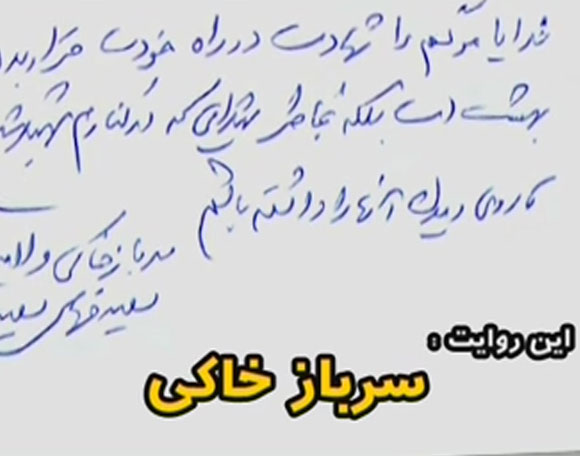 خدایا مرگم را شهادت در راه خودت قرار بده
بهشت است بلکه بخاطر شهدای که در کنارم شهید
تا روی دیدن آنها را داشته باشم
سرباز خاکی ولا
سعید
این روایت :
سرباز خاکی